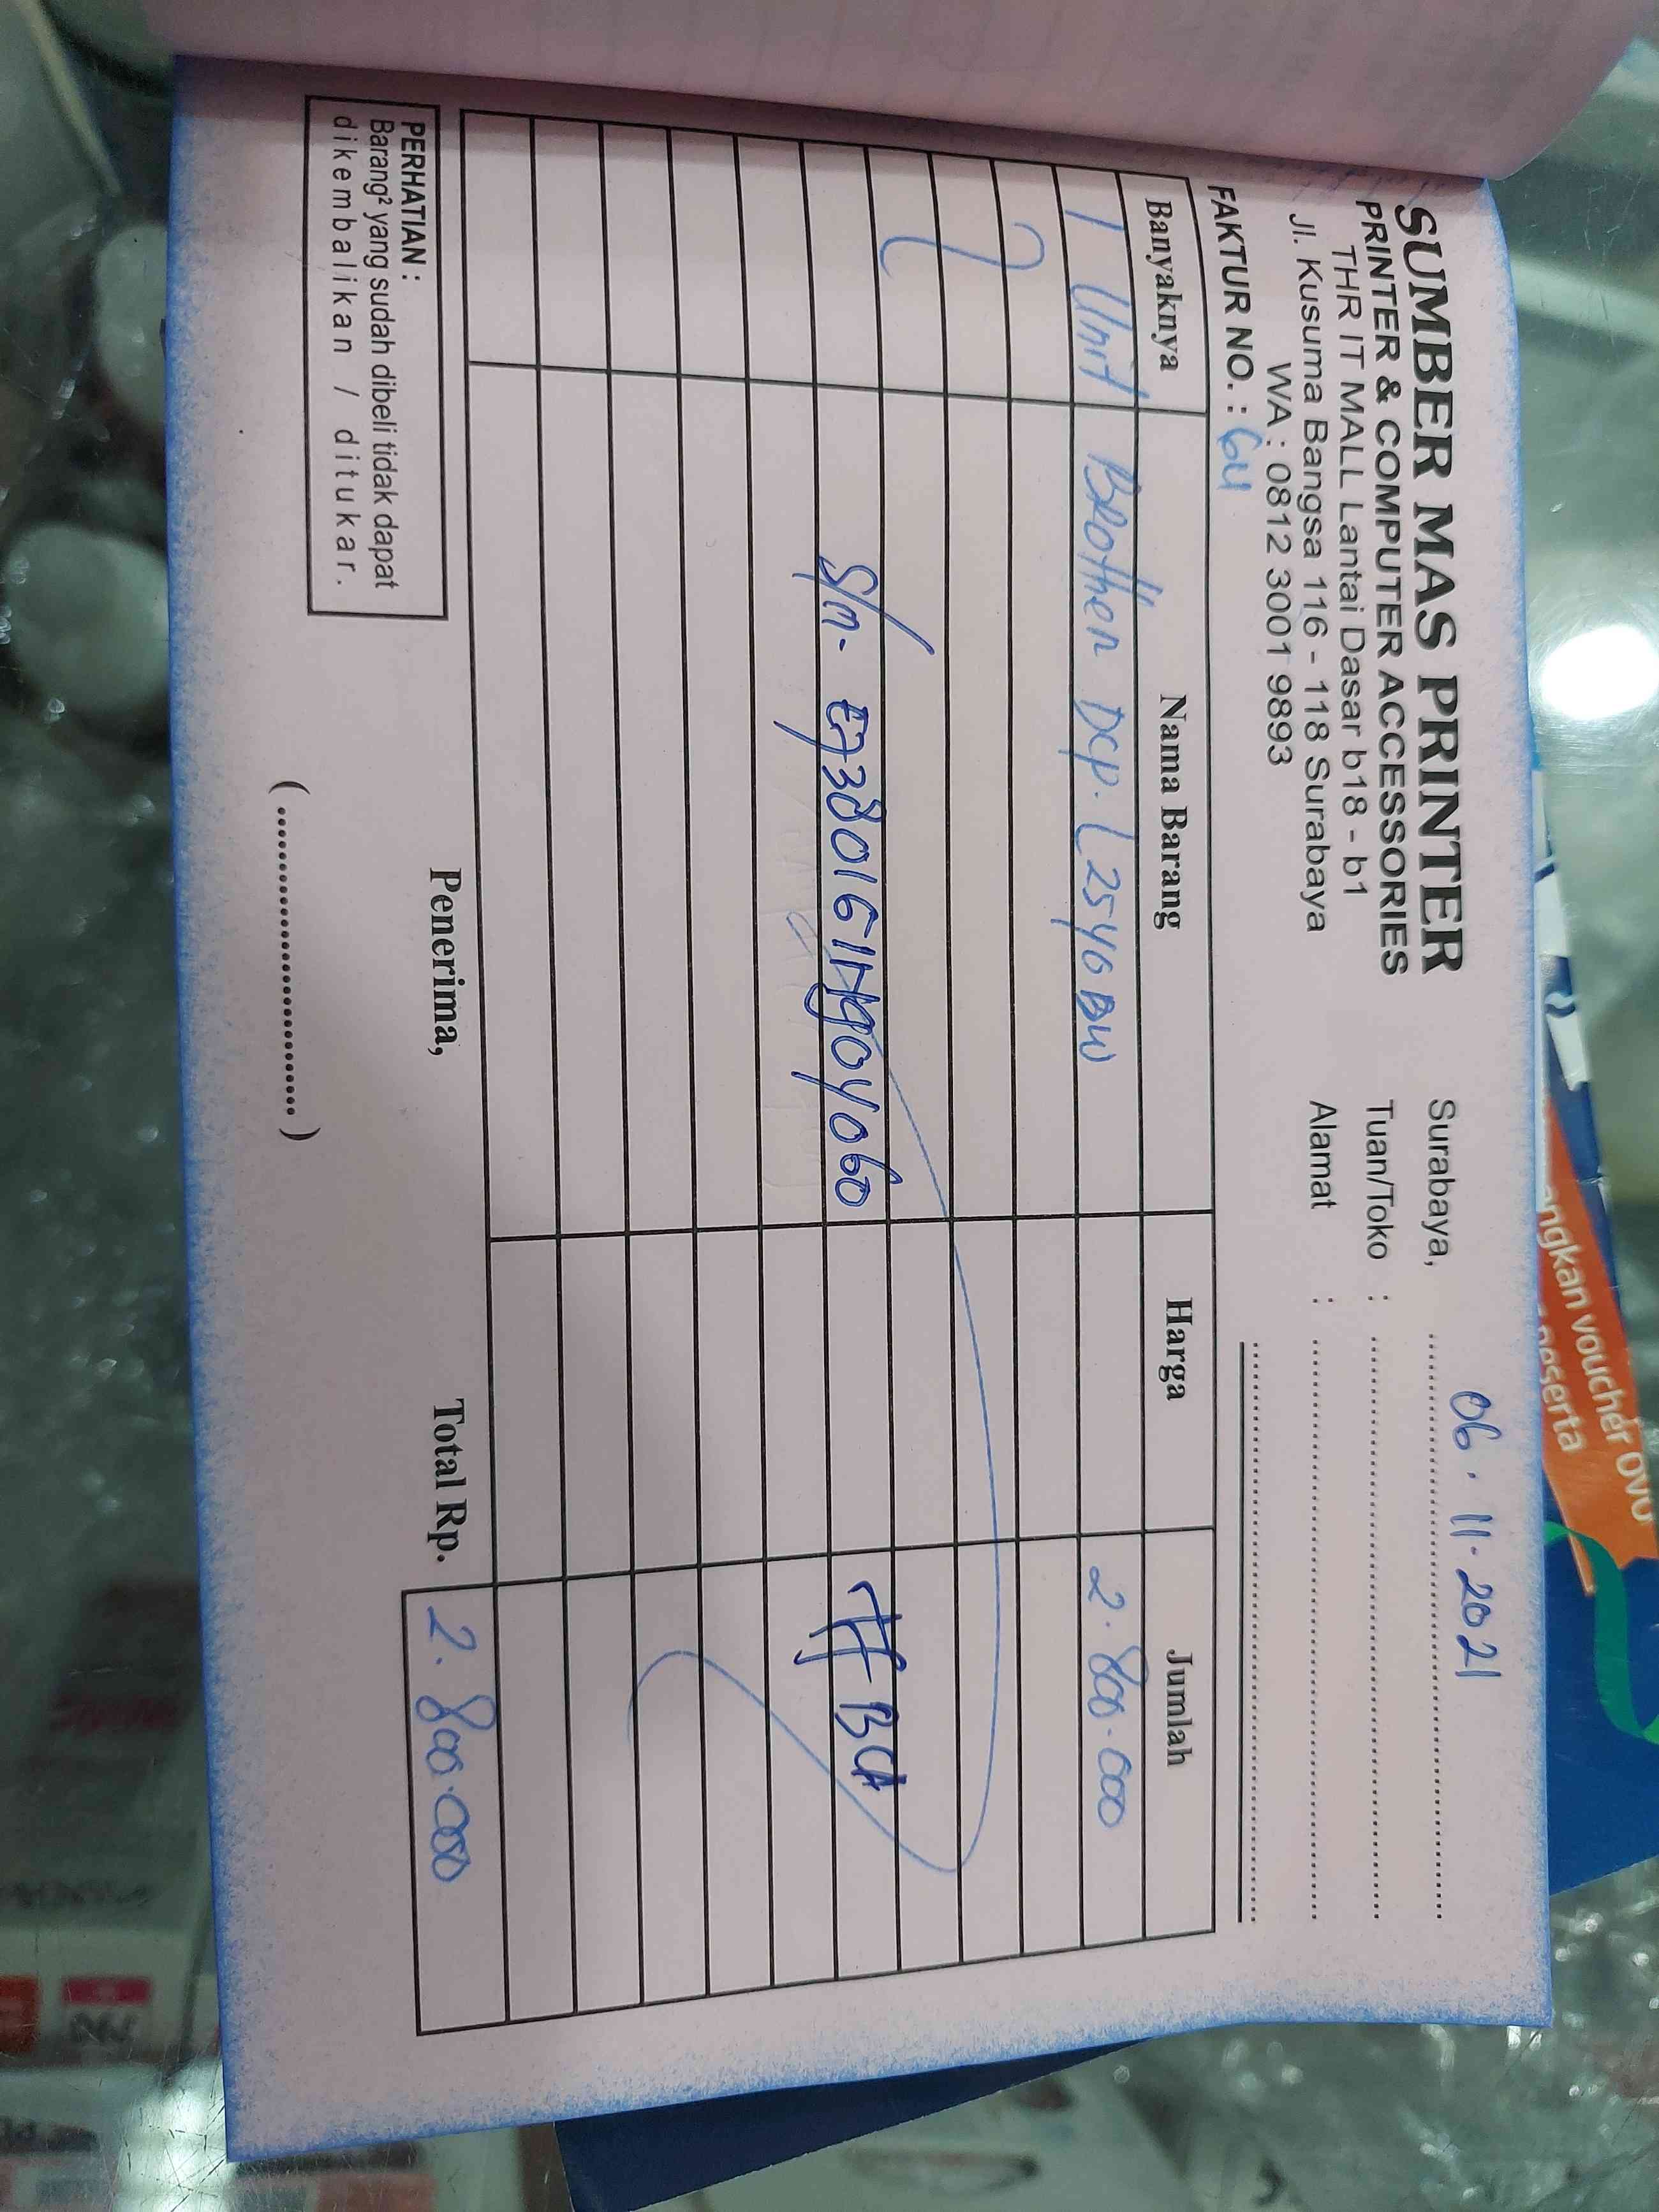 SUMBER MAS PRINTER
PRINTER & COMPUTER ACCESSORIES
THR IT MALL Lantai Dasar b18 - b1
Jl. Kusuma Bangsa 116 - 118 Surabaya
WA : 0812 3001 9893
Surabaya, 06 · 11 · 2021
Tuan/Toko :
Alamat :
FAKTUR NO. : 64
Banyaknya Nama Barang Harga Jumlah
1 Unit Brother DCP. L2540DW 2.800.000
S/n.
BCA
PERHATIAN :
Barang² yang sudah dibeli tidak dapat
dikembalikan / ditukar.
Penerima,
Total Rp. 2.800.000
(..............................)
angkan voucher OVO
peserta